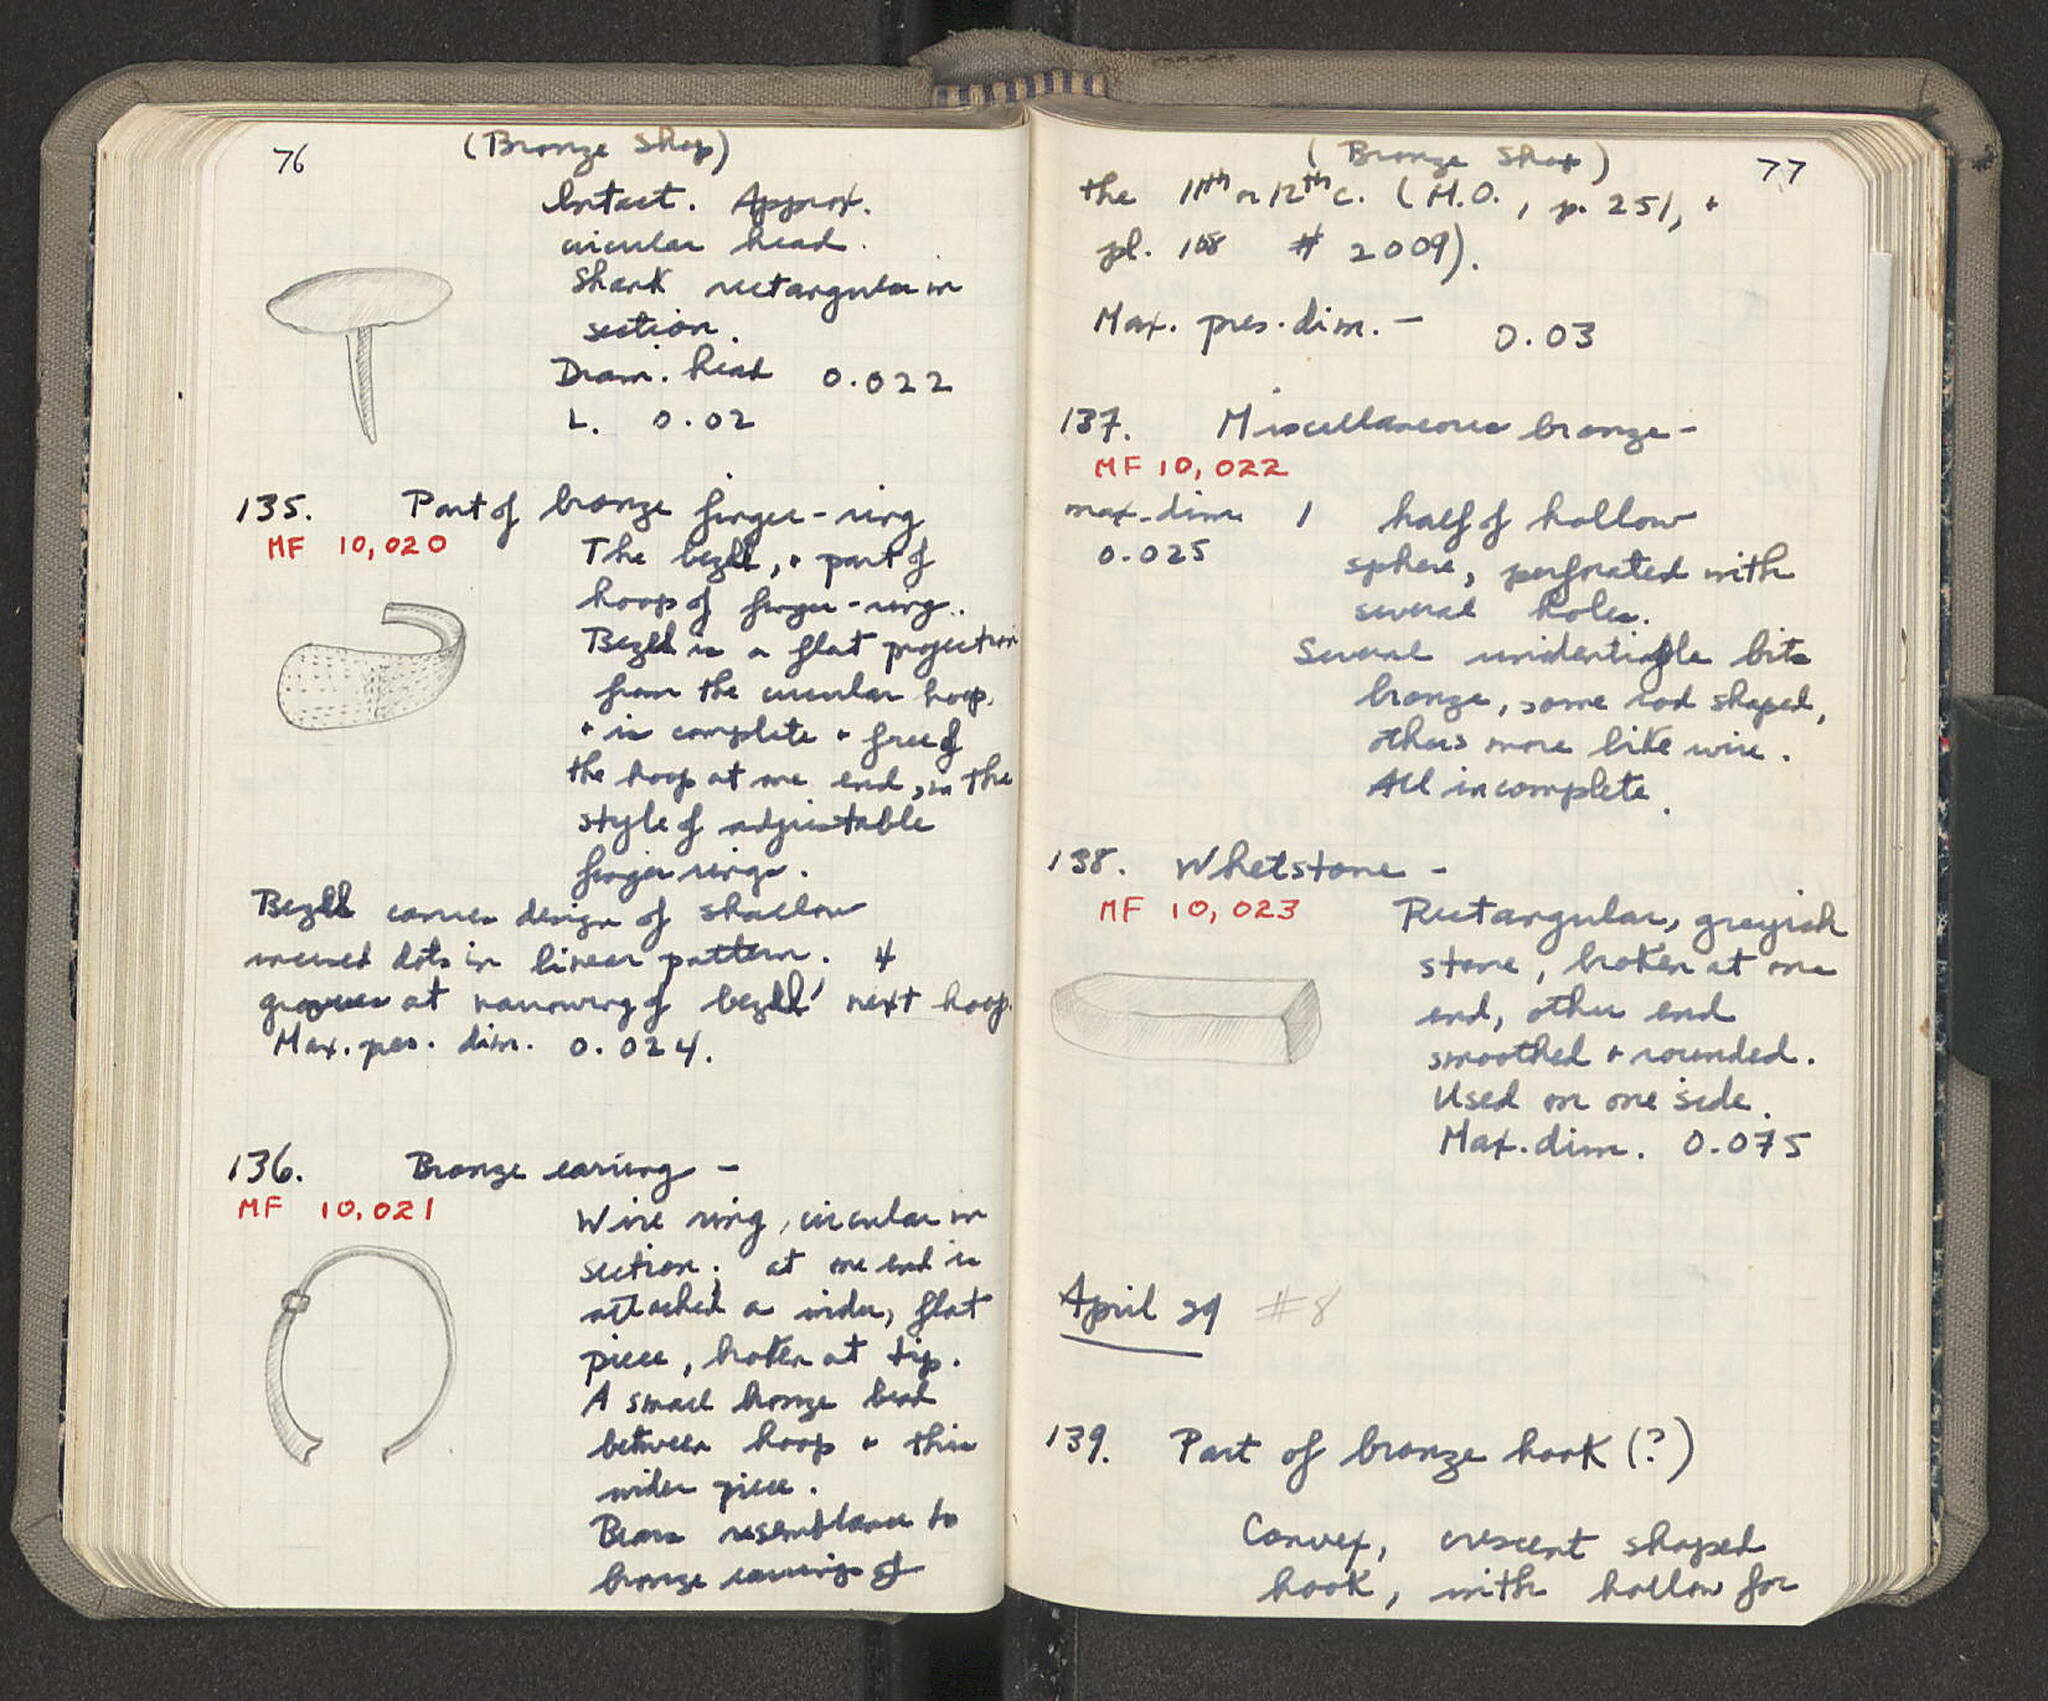 76
(Bronze Shop)
Intact. Approx.
circular head.
Shank rectangular in
section.
Diam. head 0.022
L. 0.02
135. Part of bronze finger-ring
MF 10,020
The bezel, + part of
hoop of finger-ring..
Bezel is a flat projection
from the circular hoop,
+ is complete + free of
the hoop at one end, in the
style of adjustable
finger rings.
Bezel carries design of shallow
incised dots in linear pattern. 4
grooves at narrowing of bezel next hoop.
Max. pes. dim. 0.024.
136. Bronze earring -
MF 10,021
Wire ring, circular in
section; at one end is
attached a wider, flat
piece, broken at tip.
A small bronze bead
between hoop + this
wider piece.
Bears resemblance to
bronze earrings of
(Bronze Shop)
77
the 11th or 12th c. (M.O., p. 251, +
pl. 108 # 2009).
Max. pres. dim. - 0.03
137. Miscellaneous bronze -
MF 10,022
max. dim. 1 half of hollow
0.025 sphere, perforated with
several holes.
Several unidentifible bits
bronze, some rod shaped,
others more like wire.
All incomplete.
138. Whetstone -
MF 10,023
Rectangular, greyish
stone, broken at one
end, other end
smoothed + rounded.
Used on one side.
Max. dim. 0.075
April 29 #8
139. Part of bronze hook (?)
Convex, crescent shaped
hook, with hollow for